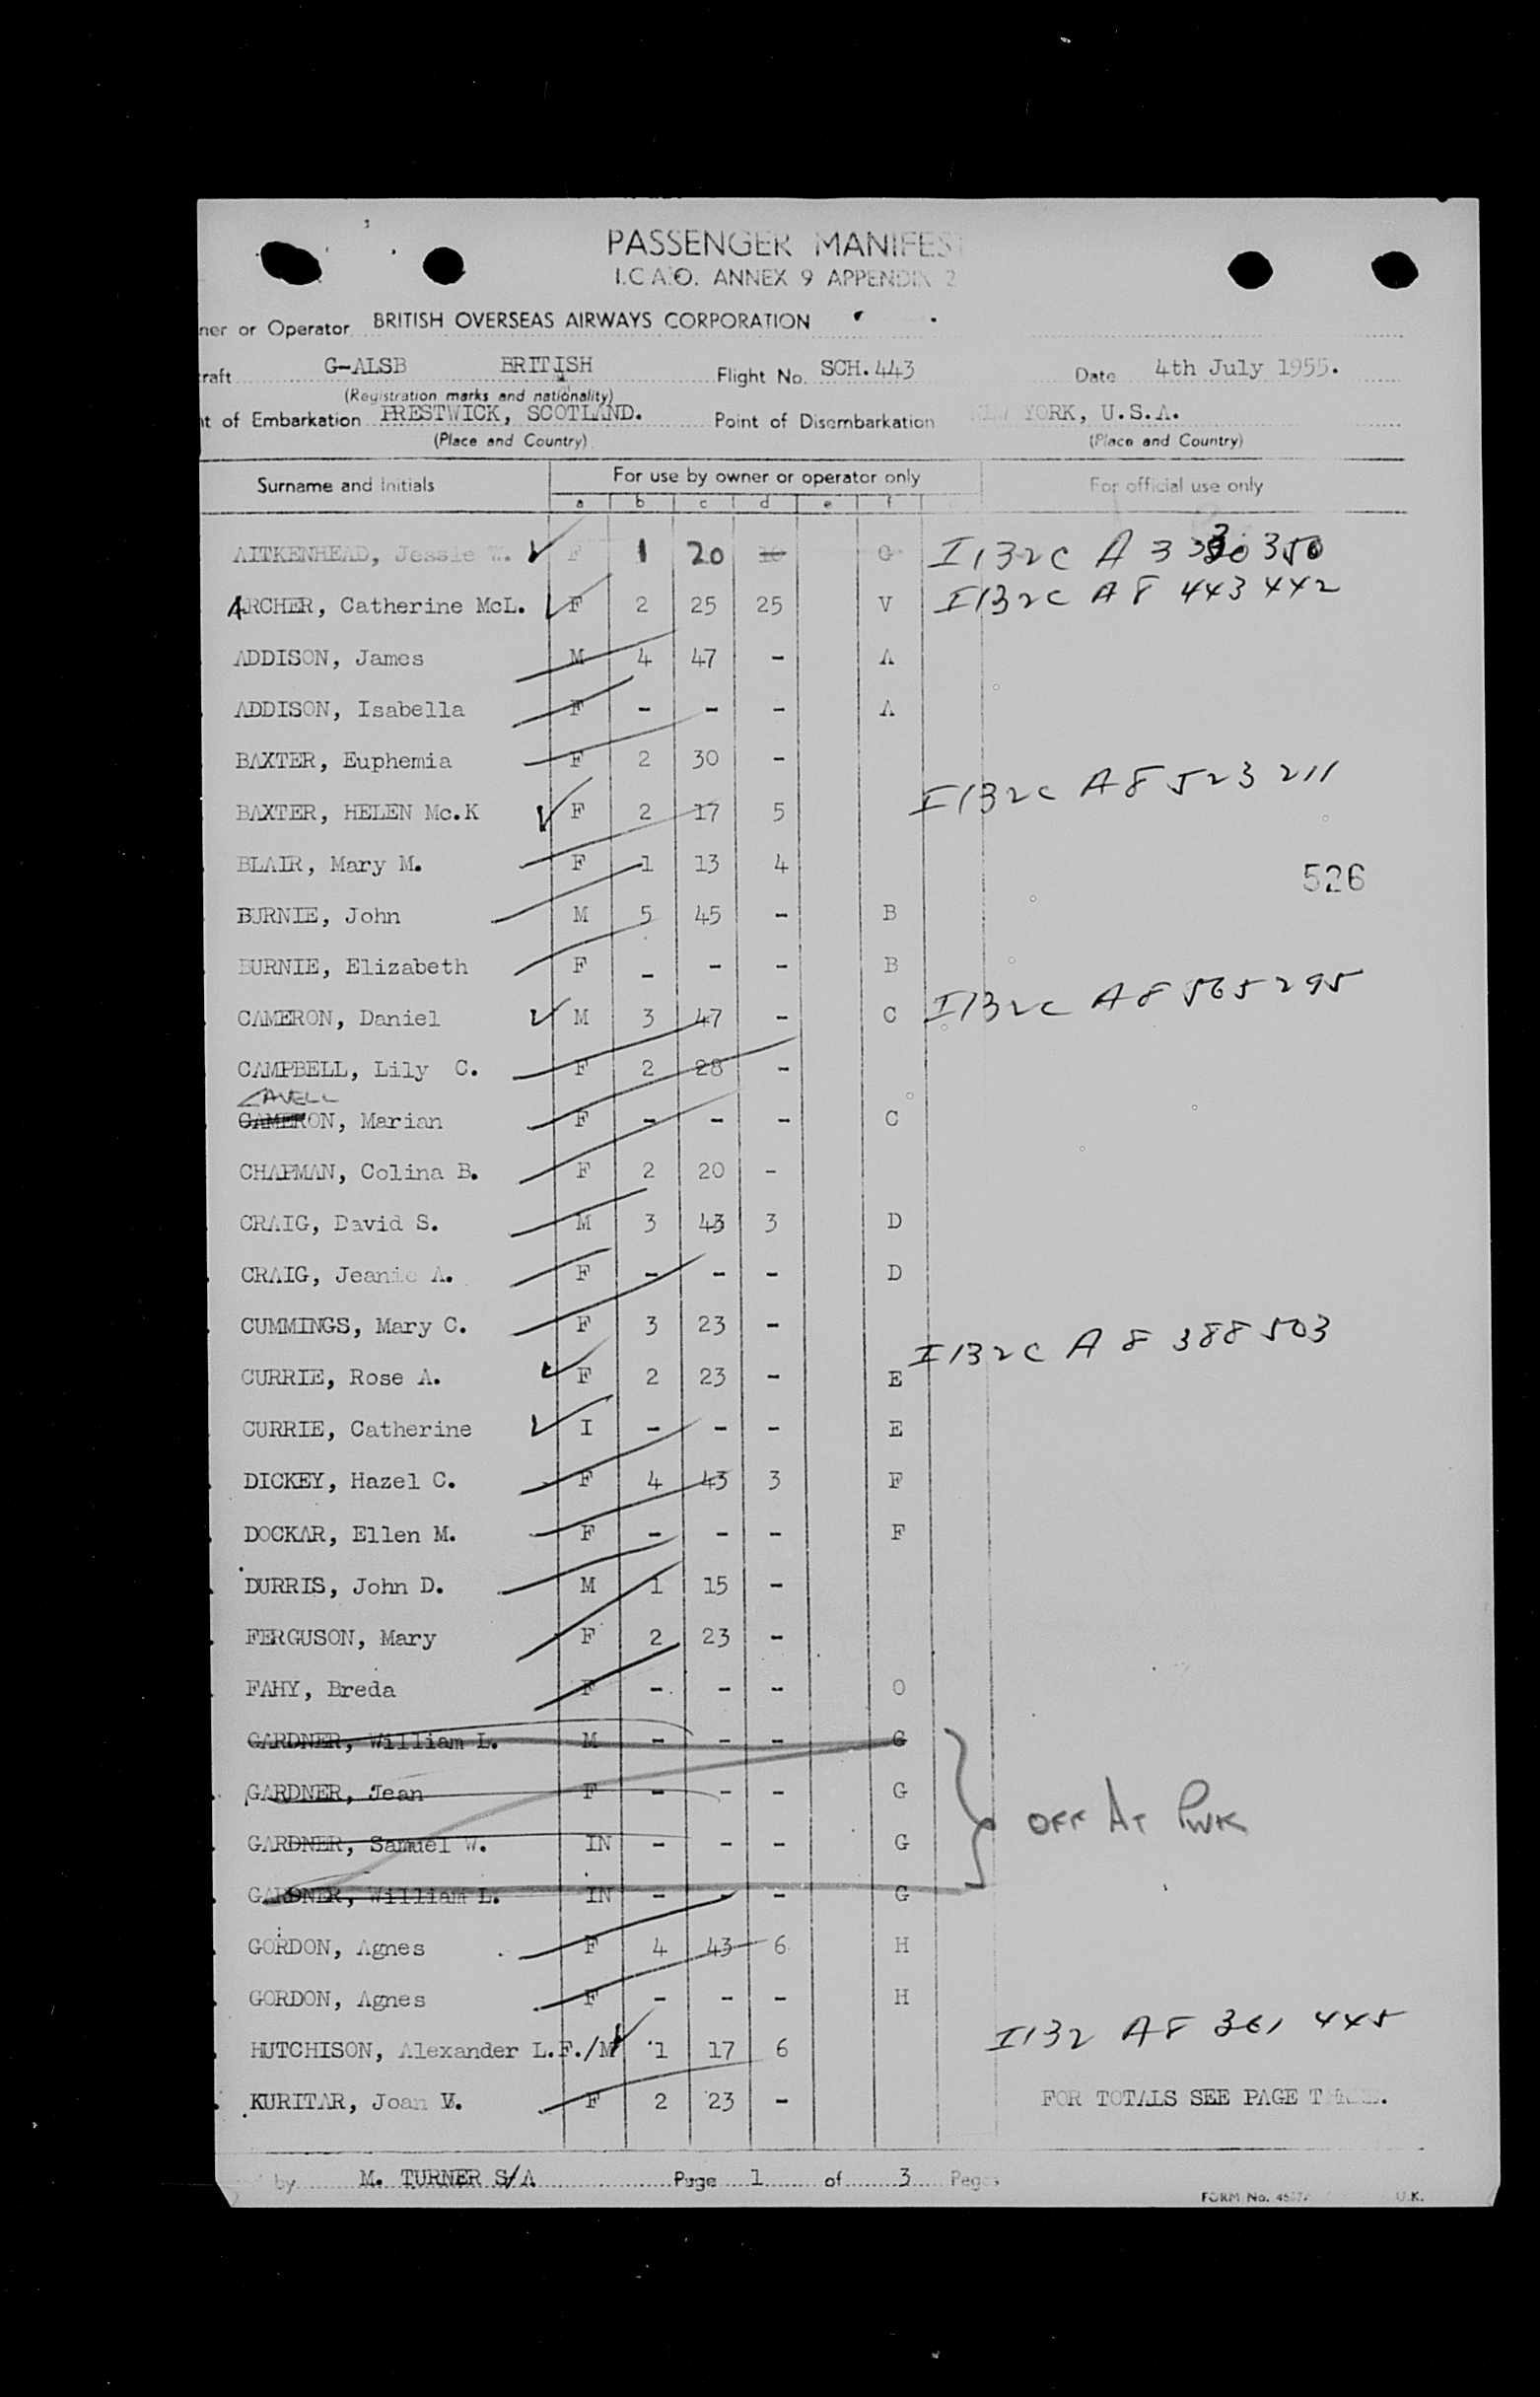 PASSENGER MANIFES
I.C.A.O. ANNEX 9 APPENDIX 2
ner or Operator BRITISH OVERSEAS AIRWAYS CORPORATION
raft G-ALSB BRITISH Flight No. SCH.443 Date 4th July 1955.
(Registration marks and nationality)
nt of Embarkation PRESTWICK, SCOTLAND. Point of Disembarkation NEW YORK, U.S.A.
(Place and Country) (Place and Country)
Surname and Initials For use by owner or operator only For official use only
a b c d e f
AITKENHEAD, Jessie W. F 1 20 10 G I132C A3 350
ARCHER, Catherine McL. F 2 25 25 V I132C A8 443 442
ADDISON, James M 4 47 - A
ADDISON, Isabella F - - - A
BAXTER, Euphemia F 2 30 -
BAXTER, HELEN Mc.K F 2 17 5 I132C A8 523 211
BLAIR, Mary M. F 1 13 4 526
BURNIE, John M 5 45 - B
BURNIE, Elizabeth F - - - B
CAMERON, Daniel M 3 47 - C I132C A8 565 295
CAMPBELL, Lily C. F 2 28 -
CAVELL
CAMERON, Marian F - - - C
CHAPMAN, Colina B. F 2 20 -
CRAIG, David S. M 3 43 3 D
CRAIG, Jeanie A. F - - - D
CUMMINGS, Mary C. F 3 23 -
CURRIE, Rose A. F 2 23 - E I132C A8 388 503
CURRIE, Catherine I - - - E
DICKEY, Hazel C. F 4 43 3 F
DOCKAR, Ellen M. F - - - F
DURRIS, John D. M 1 15 -
FERGUSON, Mary F 2 23 -
FAHY, Breda F - - - O
GARDNER, William L. M - - - G
GARDNER, Jean F - - - G
OFF AT PWK
GARDNER, Samuel W. IN - - - G
GARDNER, William L. IN - - - G
GORDON, Agnes F 4 43 6 H
GORDON, Agnes F - - - H
HUTCHISON, Alexander L. F./M 1 17 6 I132 A8 361 445
KURITAR, Joan V. F 2 23 - FOR TOTALS SEE PAGE THREE.
by M. TURNER S/A Page 1 of 3 Pages
FORM No. U.K.